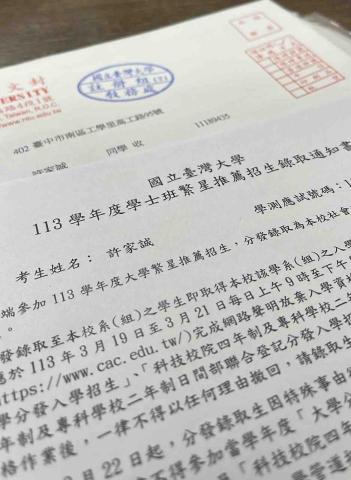 文封
ERSITY
路4段1號
Taiwan, R.O.C.
www.ntu.edu.tw
國立臺灣大學
註冊組
教務處
402 臺中市南區工學里高工路95號
11189435
許家誠 同學 收
國立臺灣大學
113 學年度學士班繁星推薦招生錄取通知書
學測應試號碼：1
考生姓名： 許家誠
端參加 113 學年度大學繁星推薦招生，分發錄取為本校社會
發錄取至本校系(組)之學生即取得本校該學系(組)之入學
應於 113 年 3 月 19 日至 3 月 21 日每日上午 9 時至下午
https://www.cac.edu.tw/)完成網路聲明放棄入學資格
學分發入學招生」、「科技校院四年制及專科學校二年制
年制及專科學校二年制日間部聯合登記分發入學招
格作業後，一律不得以任何理由撤回，請錄取生
月 22 日起，分發錄取生因特殊事由
不得參加當學年度「大學
「科技校院四年